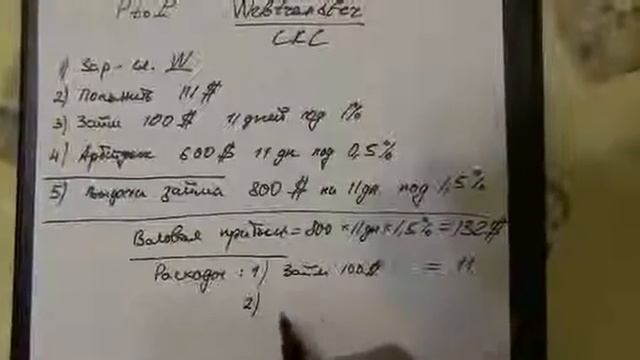 P to P Webtransfer
CKC
1) Зар-ся. W
2) Положить 111 $
3) Займ 100 $ 11 дней под 1%
4) Арбитраж 600 $ 11 дн под 0,5%
5) выдача займа 800 $ на 11 дн. под 1,5%
Валовая прибыль = 800 × 11 дн × 1,5% = 132 $
Расходы : 1) Займ 100 $ = 11
2)